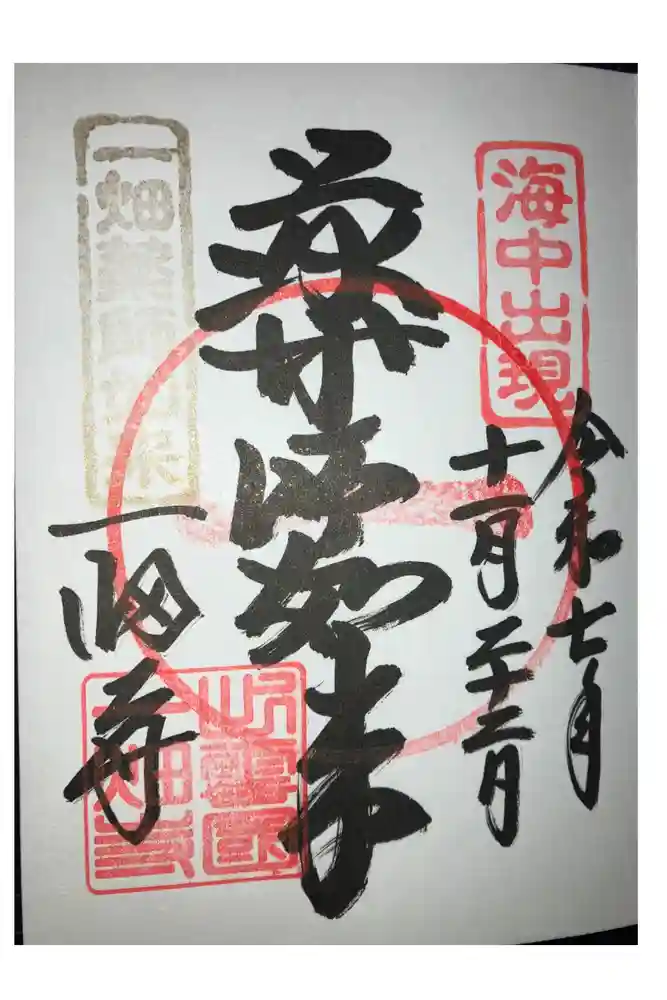 海中出現
令和七年
十一月二十三日
薬師如来
一畑薬師如来
一畑寺